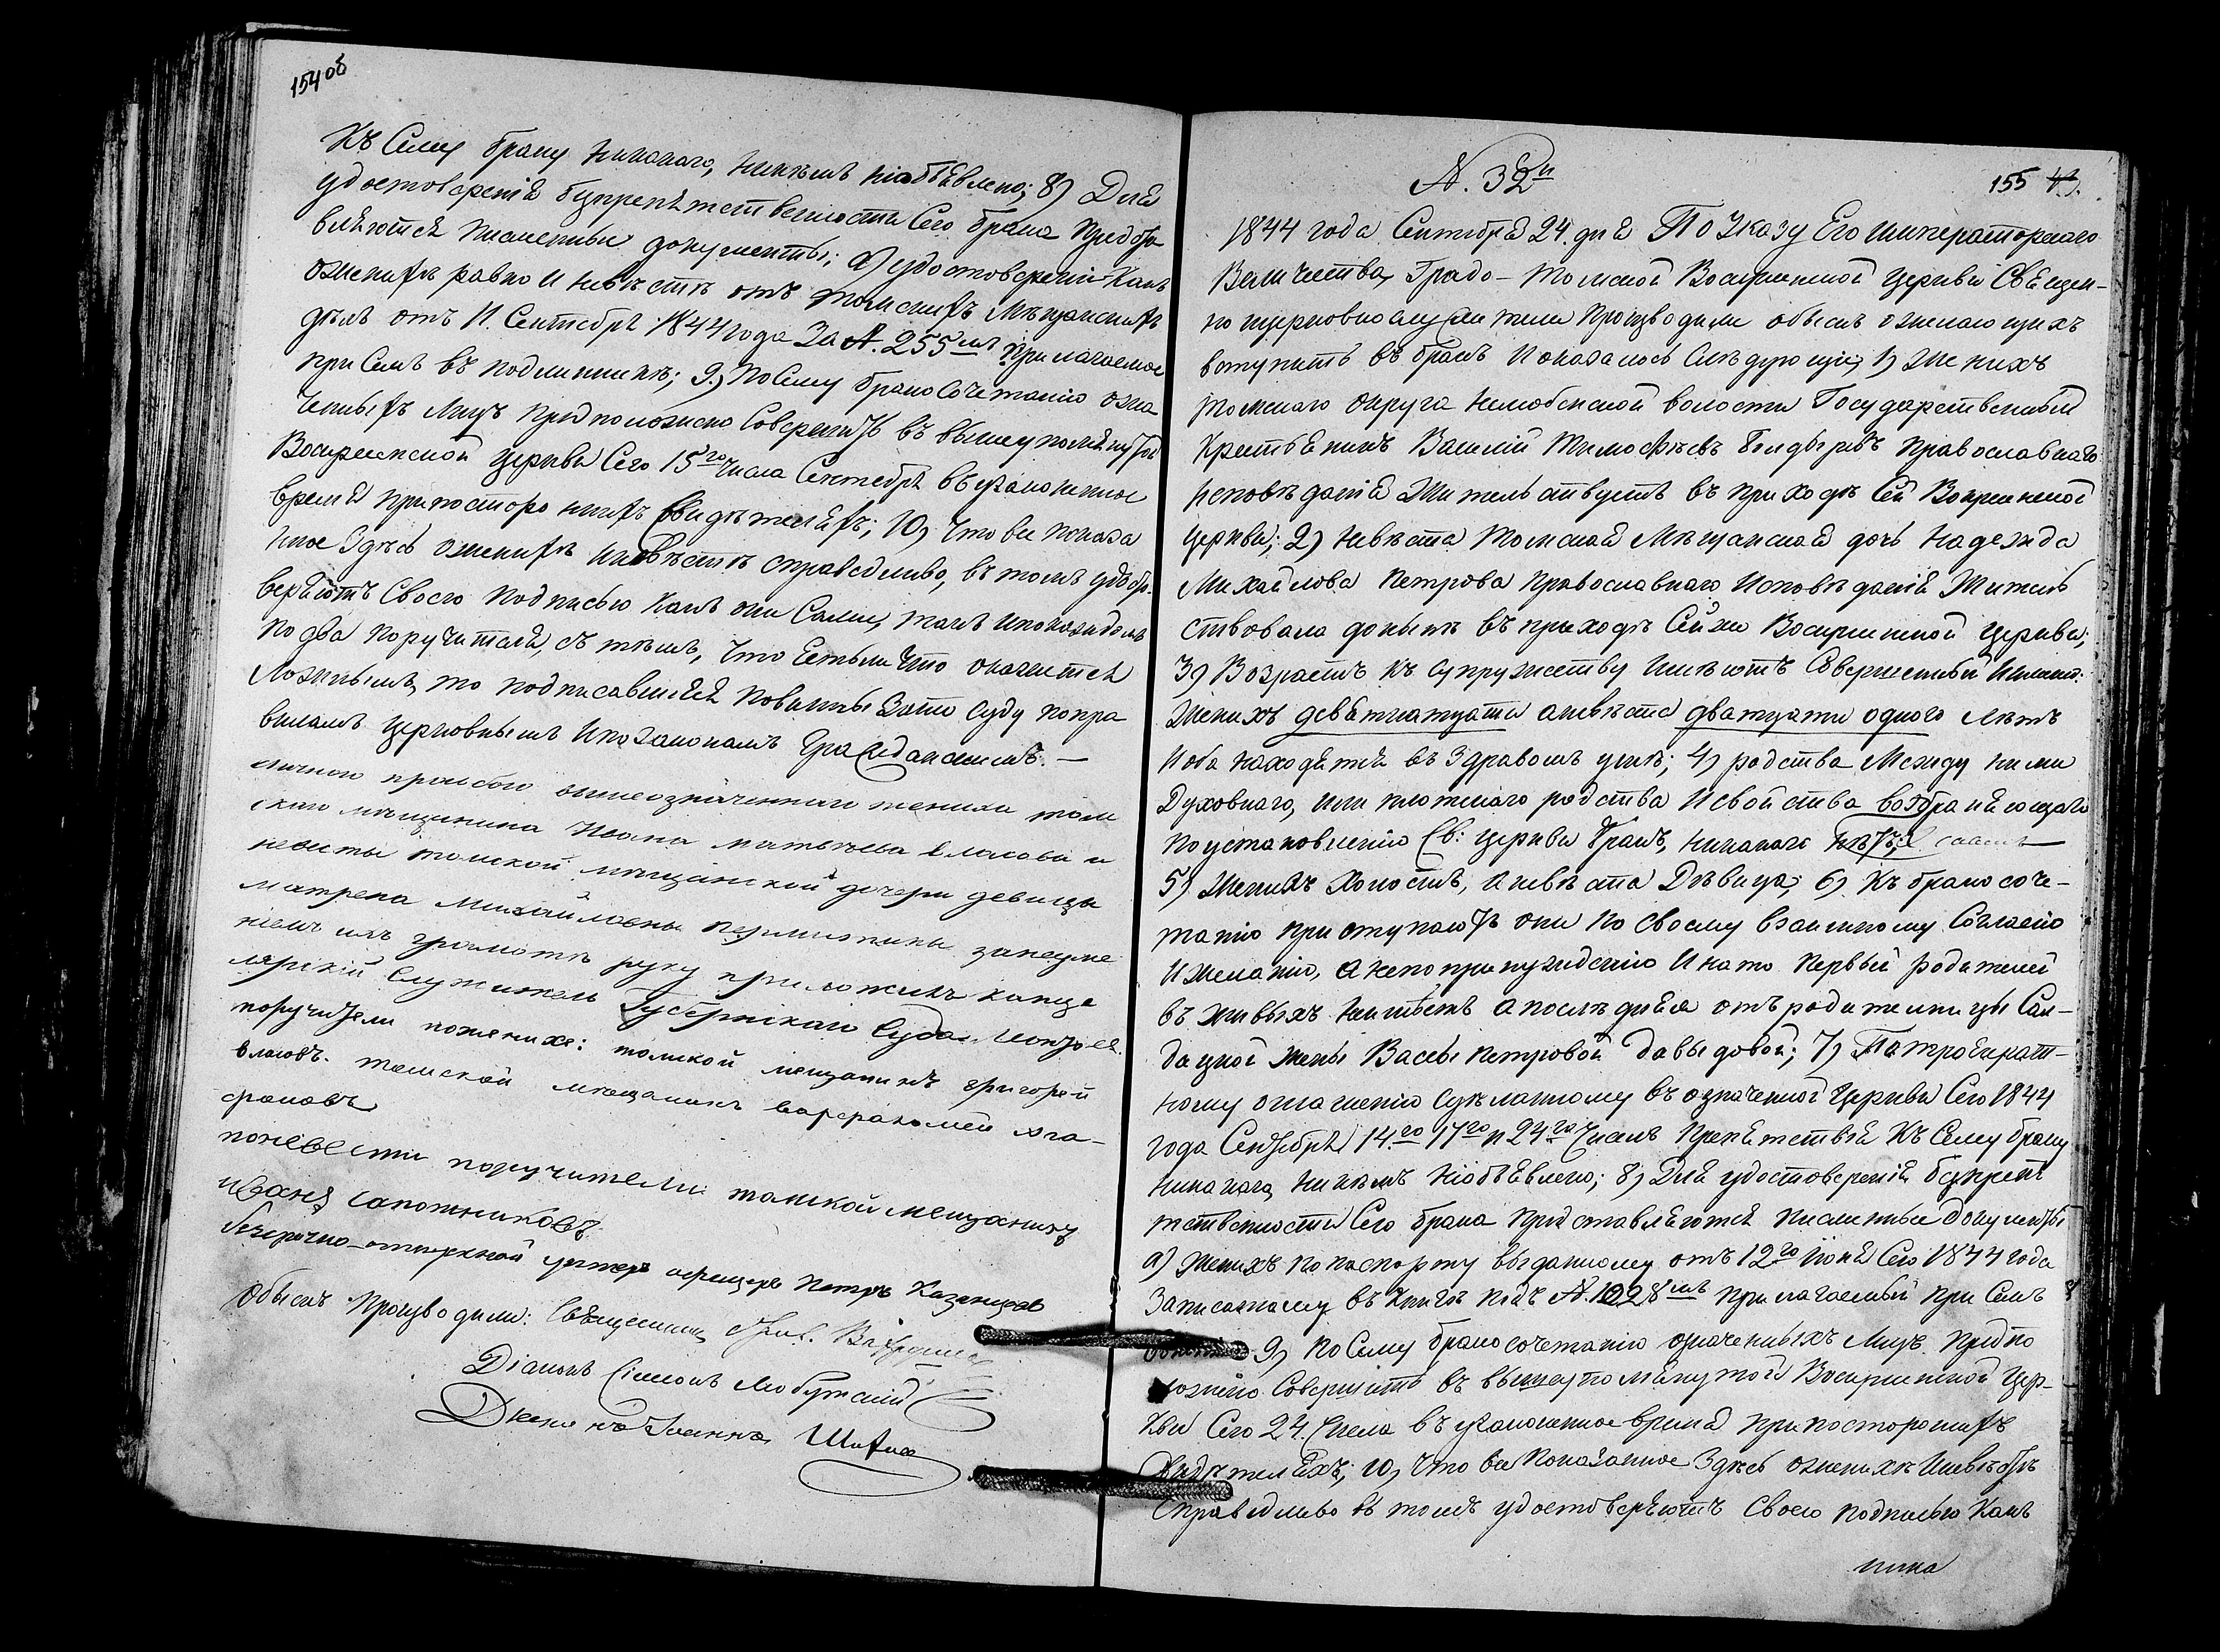 154 об
Къ Сему браку никакого, никемъ необъявлено; 8) Для
удостоверенія безпрепятственности Сего брака Предста
вляются Писменныи документы; а) удостовереніи Какъ
оженихѣ равно и невѣстѣ отъ томскихъ Мѣщанскихъ
дѣлъ отъ 11. Сентября 1844 года За №. 255мъ Прилагаемое
при Семъ въ подлинникѣ; 9.) По Сему бракосочетанію озна
ченныхъ Лицъ Предположено Совершить въ вышеупомянутой
Воскресенской церкви Сего 15го числа Сентября въ узаконенное
время при постороннихъ Свидѣтеляхъ; 10) Что все показа
нное Здѣсь оженихѣ и невѣстѣ справедливо, въ томъ удосто
веряютъ Своею Подписью Какъ они Сами, такъ и по каждомъ
по два поручителя, съ тѣмъ, Что Естьли Что окажется
Ложнымъ, то подписавшіеся повинны Зато Суду по пра
виламъ церковнымъ и по законамъ Гражданскимъ. —
личною прозьбою вышеозначеннаго жениха том
скаго мѣщанина Ивана Матвѣева Власова и
невесты томской мѣщанской дочери девицы
Матрена Михайловны занеуме
ніемъ ихъ грамотѣ руку приложилъ канце
лярскій Служитель Губернскаго Суда
поручители пожениху: томской мещанинъ Григорей
Власовъ. томской мещанинъ варфоломей
поневести поручители томской мещанинъ
иванъ сапожниковъ
безсрочно-отпускной унтеръ офицеръ Петръ Казанцовъ
Обыскъ Производили: Священникъ
Діаконъ Сімеонъ Любутскій
Дьячекъ Іоаннъ
№. 32й
155
1844 года Сентября 24. дня По Указу Его Императорскаго
Величества, Градо-Томской Воскресенской Церкви Священ-
но церковнослужители Производили обыскъ о желающихъ
вступить въ бракъ и оказалось Слѣдующіе; 1) Женихъ
Томскаго Округа Нелюбенской волости Государственный
Крестьянинъ Василій Тимофѣевъ Болдыревъ Православнаго
исповѣданія Жительствуетъ въ приходѣ Сей Воскресенской
Церкви; 2) Невѣста Томская Мѣщанская дочь Надежда
Михайлова Петрова Православнаго Исповѣданія Житель
ствовала донынѣ въ приходѣ Сей же Воскресенской Церкви;
3) Возрастъ къ Супружеству Имѣютъ Совершенный Именно:
Женихъ девятнатцати а невѣста дватцати одного Лѣтъ
И оба находятся въ Здравомъ умѣ; 4) родства Между ними
Духовнаго, или плотскаго родства и свойства возбраняющаго
по установленію Св: Церкви бракъ, никакого нѣтъ;
5) Женихъ Холостъ, а невѣста Дѣвица; 6) Къ бракосоче-
танію приступаютъ они по своему взаимному Согласію
и желанію, а не по принужденію И на то Первый родителей
въ живыхъ неимѣетъ а послѣдняя отъ родительницы Сал-
дацкой жены Васены Петровой Давыдовой; 7) По троекрат-
ному оглашенію сдѣланному въ означенной Церкви Сего 1844
года Сентября 14го 17го и 24го Числъ Препятствія Къ Сему браку
никакого никемъ необъявлено; 8) Для удостоверенія безпрепя
тственности Сего брака Представляются Писменные Документы
а) Женихъ по паспорту выданному отъ 12го Іюня Сего 1844 года
Записанному въ Книгѣ подъ №. 1028мъ прилагаемый при Семъ
9) По Сему бракосочетанію означенныхъ Лицъ Предпо
ложено Совершить въ вышеупомянутой Воскресенской Цер-
кви Сего 24. Числа въ узаконенное время при постороннихъ
Свидѣтеляхъ; 10) Что все Показанное Здѣсь оженихѣ и невѣстѣ
Справедливо въ томъ удостоверяютъ Своею подписью Какъ